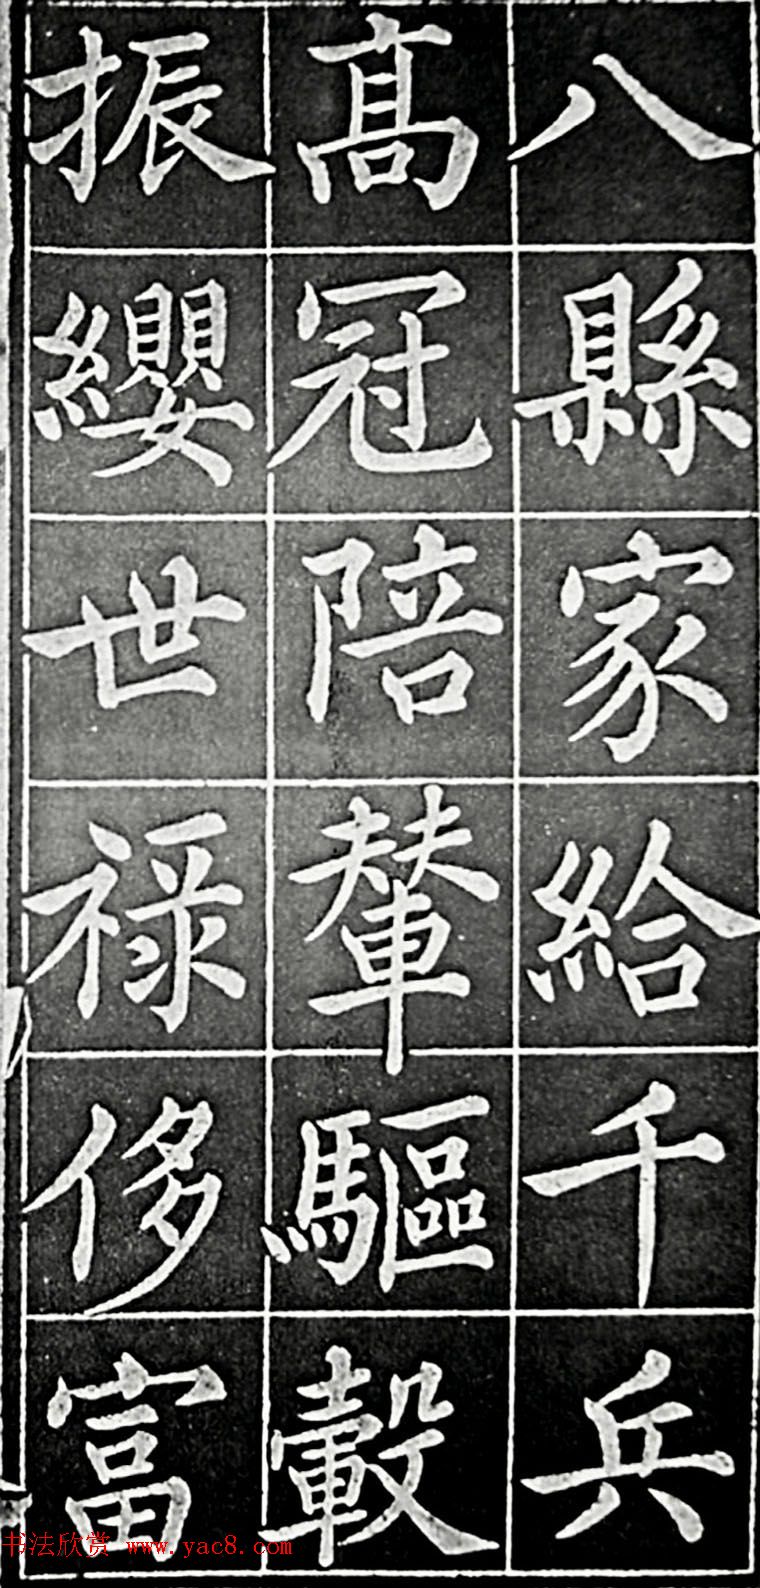 八縣家給千兵
高冠陪輦驅轂
振纓世祿侈富
书法欣赏 www.yac8.com